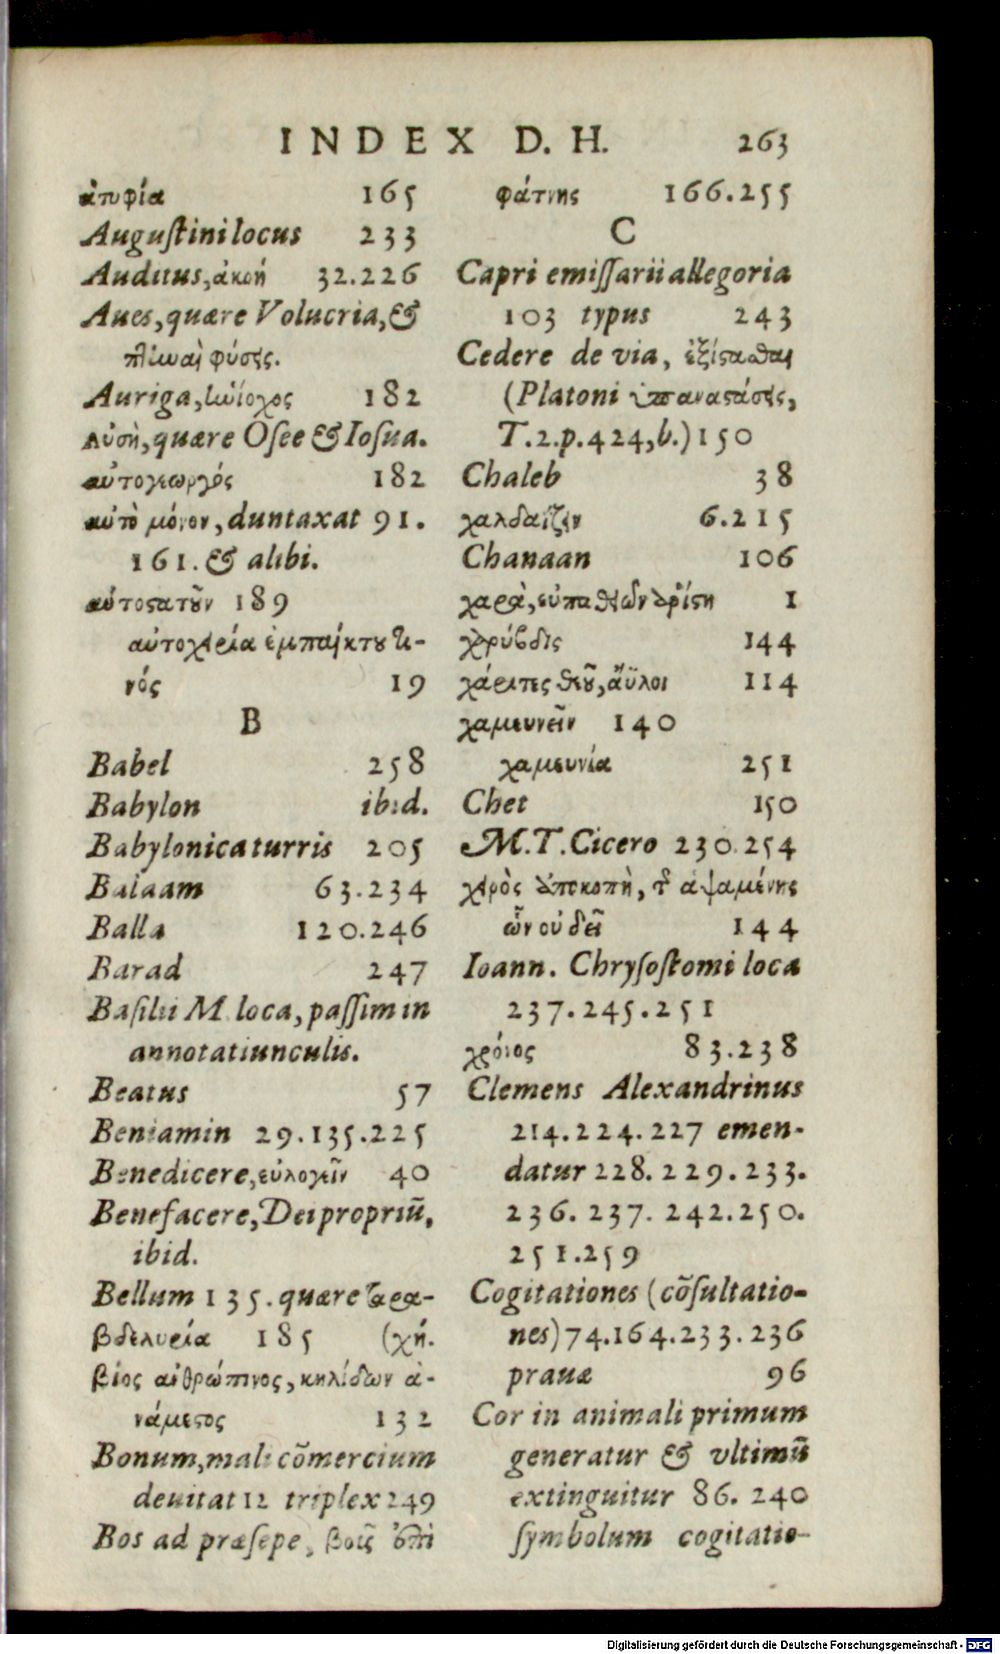 INDEX D. H. 263
ἀτυφία 165
Augustini locus 233
Auditus, ἀκοή 32.226
Aues, quære Volucria, &
πτίωαὶ φύσεις.
Auriga, ἡνίοχος 182
Αὐσὴ, quære Osee & Iosua.
αὐτογεωργός 182
αὐτὸ μόνον, duntaxat 91.
161. & alibi.
αὐτοστατοῦν 189
αὐτοχειρία ἐμπαίκτου τι-
νός 19
B
Babel 258
Babylon ibid.
Babylonica turris 205
Balaam 63.234
Balla 120.246
Barad 247
Basilii M. loca, passim in
annotatiunculis.
Beatus 57
Beniamin 29.135.225
Benedicere, εὐλογεῖν 40
Benefacere, Dei propriũ,
ibid.
Bellum 135. quære ταρα-
βδελυρία 185 (χή.
βίος ἀνθρώπινος, κηλίδων ἀ-
νάμεστος 132
Bonum, mali cõmercium
deuitat 12 triplex 249
Bos ad præsepe, βοῦς ἐπὶ
φάτνης 166.255
C
Capri emissarii allegoria
103 typus 243
Cedere de via, ἐξίστασθαι
(Platoni ὑπαναστάσεις,
T.2.p.424,b.) 150
Chaleb 38
χαλδαΐζειν 6.215
Chanaan 106
χαρὰ, εὐπαθειῶν ἀρίστη 1
χάρυβδις 144
χάριτες θεοῦ, ἄϋλοι 114
χαμευνεῖν 140
χαμευνία 251
Chet 150
M.T. Cicero 230.254
χειρὸς ἀποκοπὴ, τῆς ἁψαμένης
ὧν οὐ δεῖ 144
Ioann. Chrysostomi loca
237.245.251
χρόνος 83.238
Clemens Alexandrinus
214.224.227 emen-
datur 228.229.233.
236.237.242.250.
251.259
Cogitationes (cõsultatio-
nes) 74.164.233.236
prauæ 96
Cor in animali primum
generatur & vltimũ
extinguitur 86. 240
symbolum cogitatio-
Digitalisierung gefördert durch die Deutsche Forschungsgemeinschaft - DFG